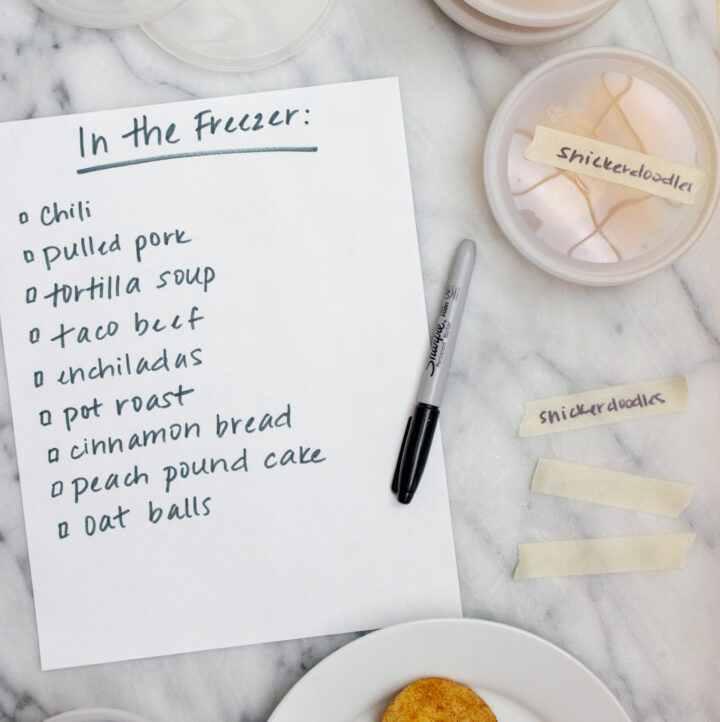 In the Freezer:
chili
pulled pork
tortilla soup
taco beef
enchiladas
pot roast
cinnamon bread
peach pound cake
oat balls
snickerdoodles
Sharpie
snickerdoodles